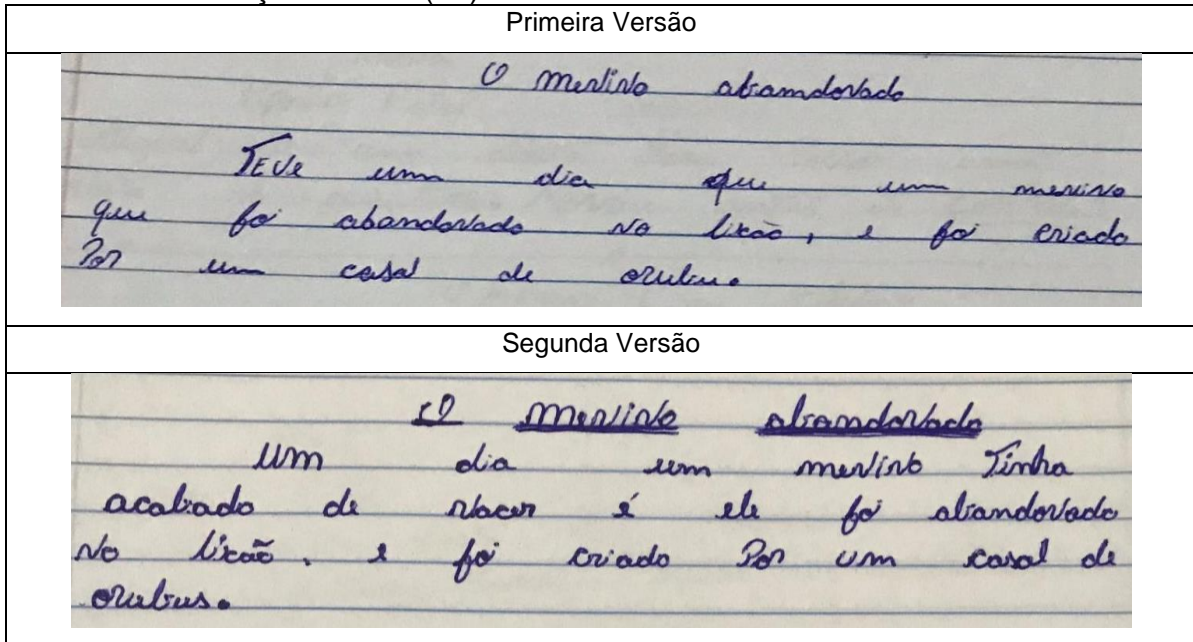 Primeira Versão
O menino abamdonado
TEVe um dia que um menino
que foi abandonado No lixão, e foi criado
Por um casal de orubu.
Segunda Versão
O menino abandonado
um dia um menino Tinha
acabado de nacer é ele foi abandonado
No lixão. e foi criado Por um casal de
orubus.